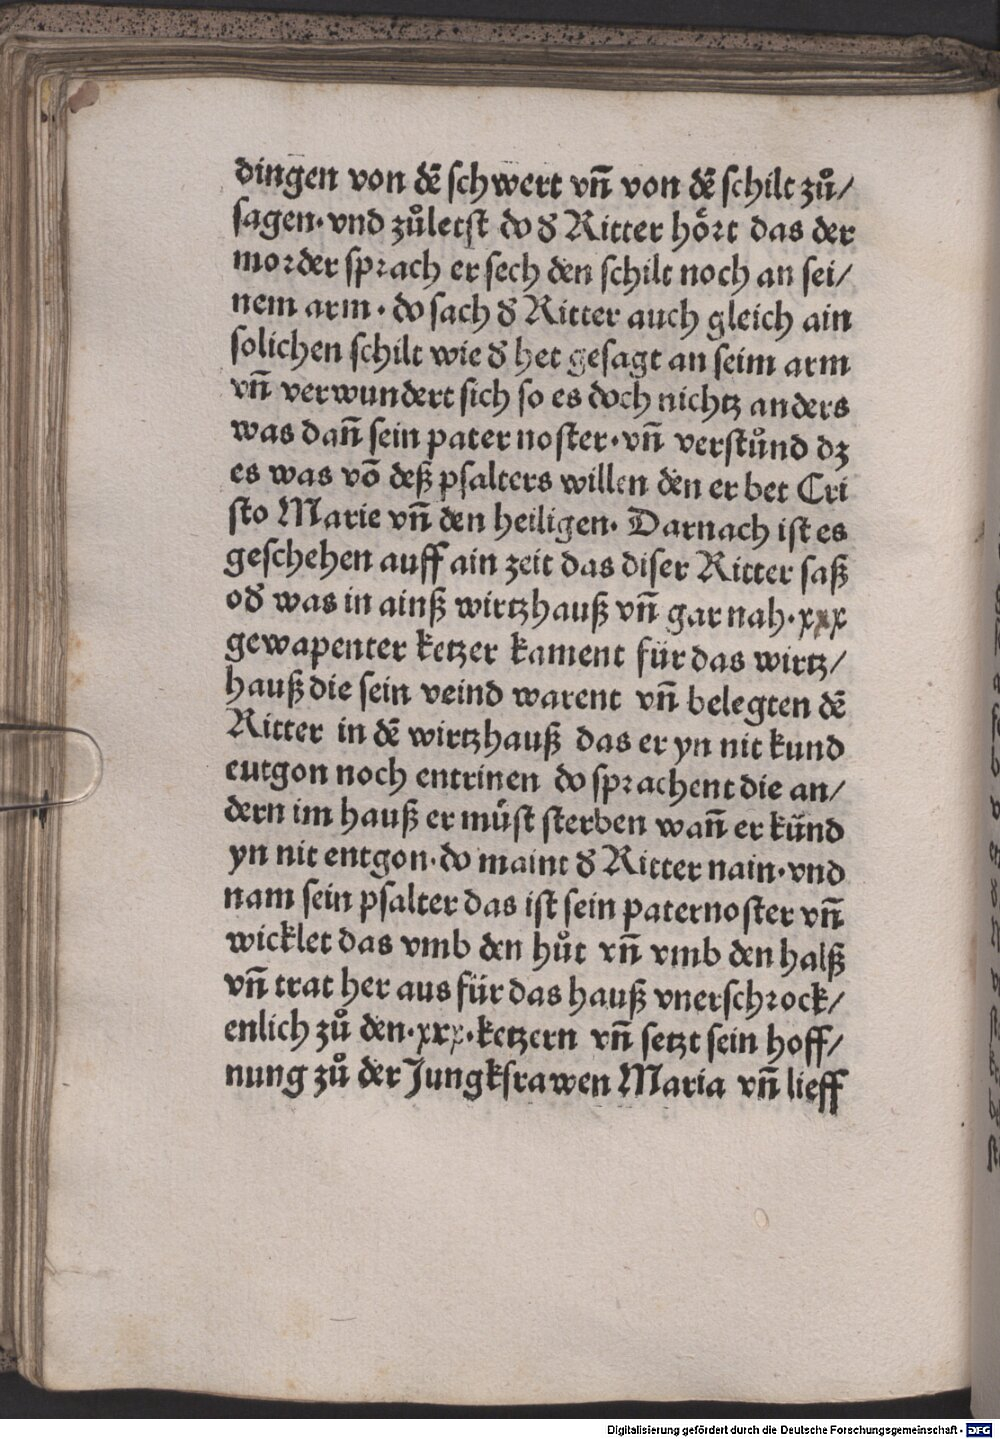 dingen von dē schwert vn̄ von dē schilt zů/
sagen·vnd zůletst do d̕ Ritter hoͤrt das der
morder sprach er sech den schilt noch an sei/
nem arm·do sach d̕ Ritter auch gleich ain
solichen schilt wie d̕ het gesagt an seim arm
vn̄ verwundert sich so es doch nichtz anders
was dan̄ sein pater noster·vn̄ verstůnd dz
es was vō deß psalters willen den er bet Cri
sto Marie vn̄ den heiligen. Darnach ist es
geschehen auff ain zeit das diser Ritter saß
od̕ was in ainß wirtzhauß vn̄ gar nah·xxx
gewapenter ketzer kament für das wirtz/
hauß die sein veind warent vn̄ belegten dē
Ritter in dē wirtzhauß das er yn nit kund
eutgon noch entrinen do sprachent die an/
dern im hauß er müst sterben wan̄ er künd
yn nit entgon·do maint d̕ Ritter nain·vnd
nam sein psalter das ist sein paternoster vn̄
wicklet das vmb den hůt vn̄ vmb den halß
vn̄ trat her aus für das hauß vnerschrock/
enlich zů den·xxx·ketzern vn̄ setzt sein hoff/
nung zů der Jungkfrawen Maria vn̄ lieff
Digitalisierung gefördert durch die Deutsche Forschungsgemeinschaft - DFG